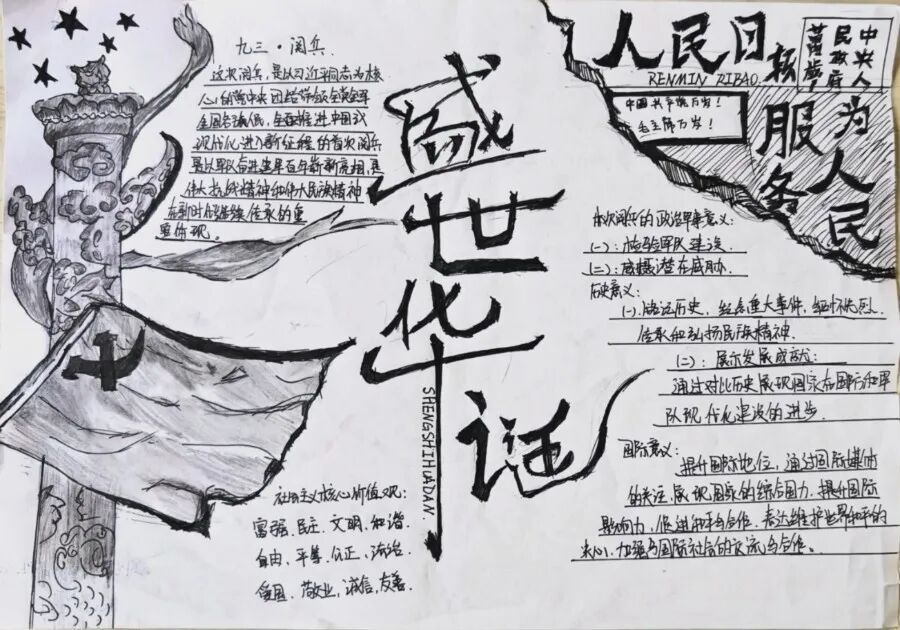 九三·阅兵
这次阅兵,是以习近平同志为核
心的党中央团结带领全党全军
全国各族人民,全面推进中国式
现代化进入新征程的首次阅兵
是以军队奋进建军百年崭新亮相,是
伟大抗战精神和伟大民族精神
在新时代继续传承的重
要体现。
盛世华诞
SHENGSHIHUADAN.
人民日报
RENMIN RIBAO.
中央人
民政府
中国共产党万岁!
毛主席万岁!
为人民
服务
本次阅兵的政治军事意义:
(一):检验军队建设.
(二):威慑潜在威胁.
历史意义:
(一).铭记历史,纪念重大事件,缅怀先烈.
传承和弘扬民族精神.
(二):展示发展成就:
通过对比历史展现国家在国防和军
队现代化建设的进步.
国际意义:
提升国际地位,通过国际媒体
的关注,展现国家的综合国力.提升国际
影响力,促进和平合作,表达维护世界和平的
决心,加强与国际社会的交流与合作。
社会主义核心价值观:
富强.民主.文明.和谐.
自由,平等.公正,法治.
爱国.敬业,诚信,友善.